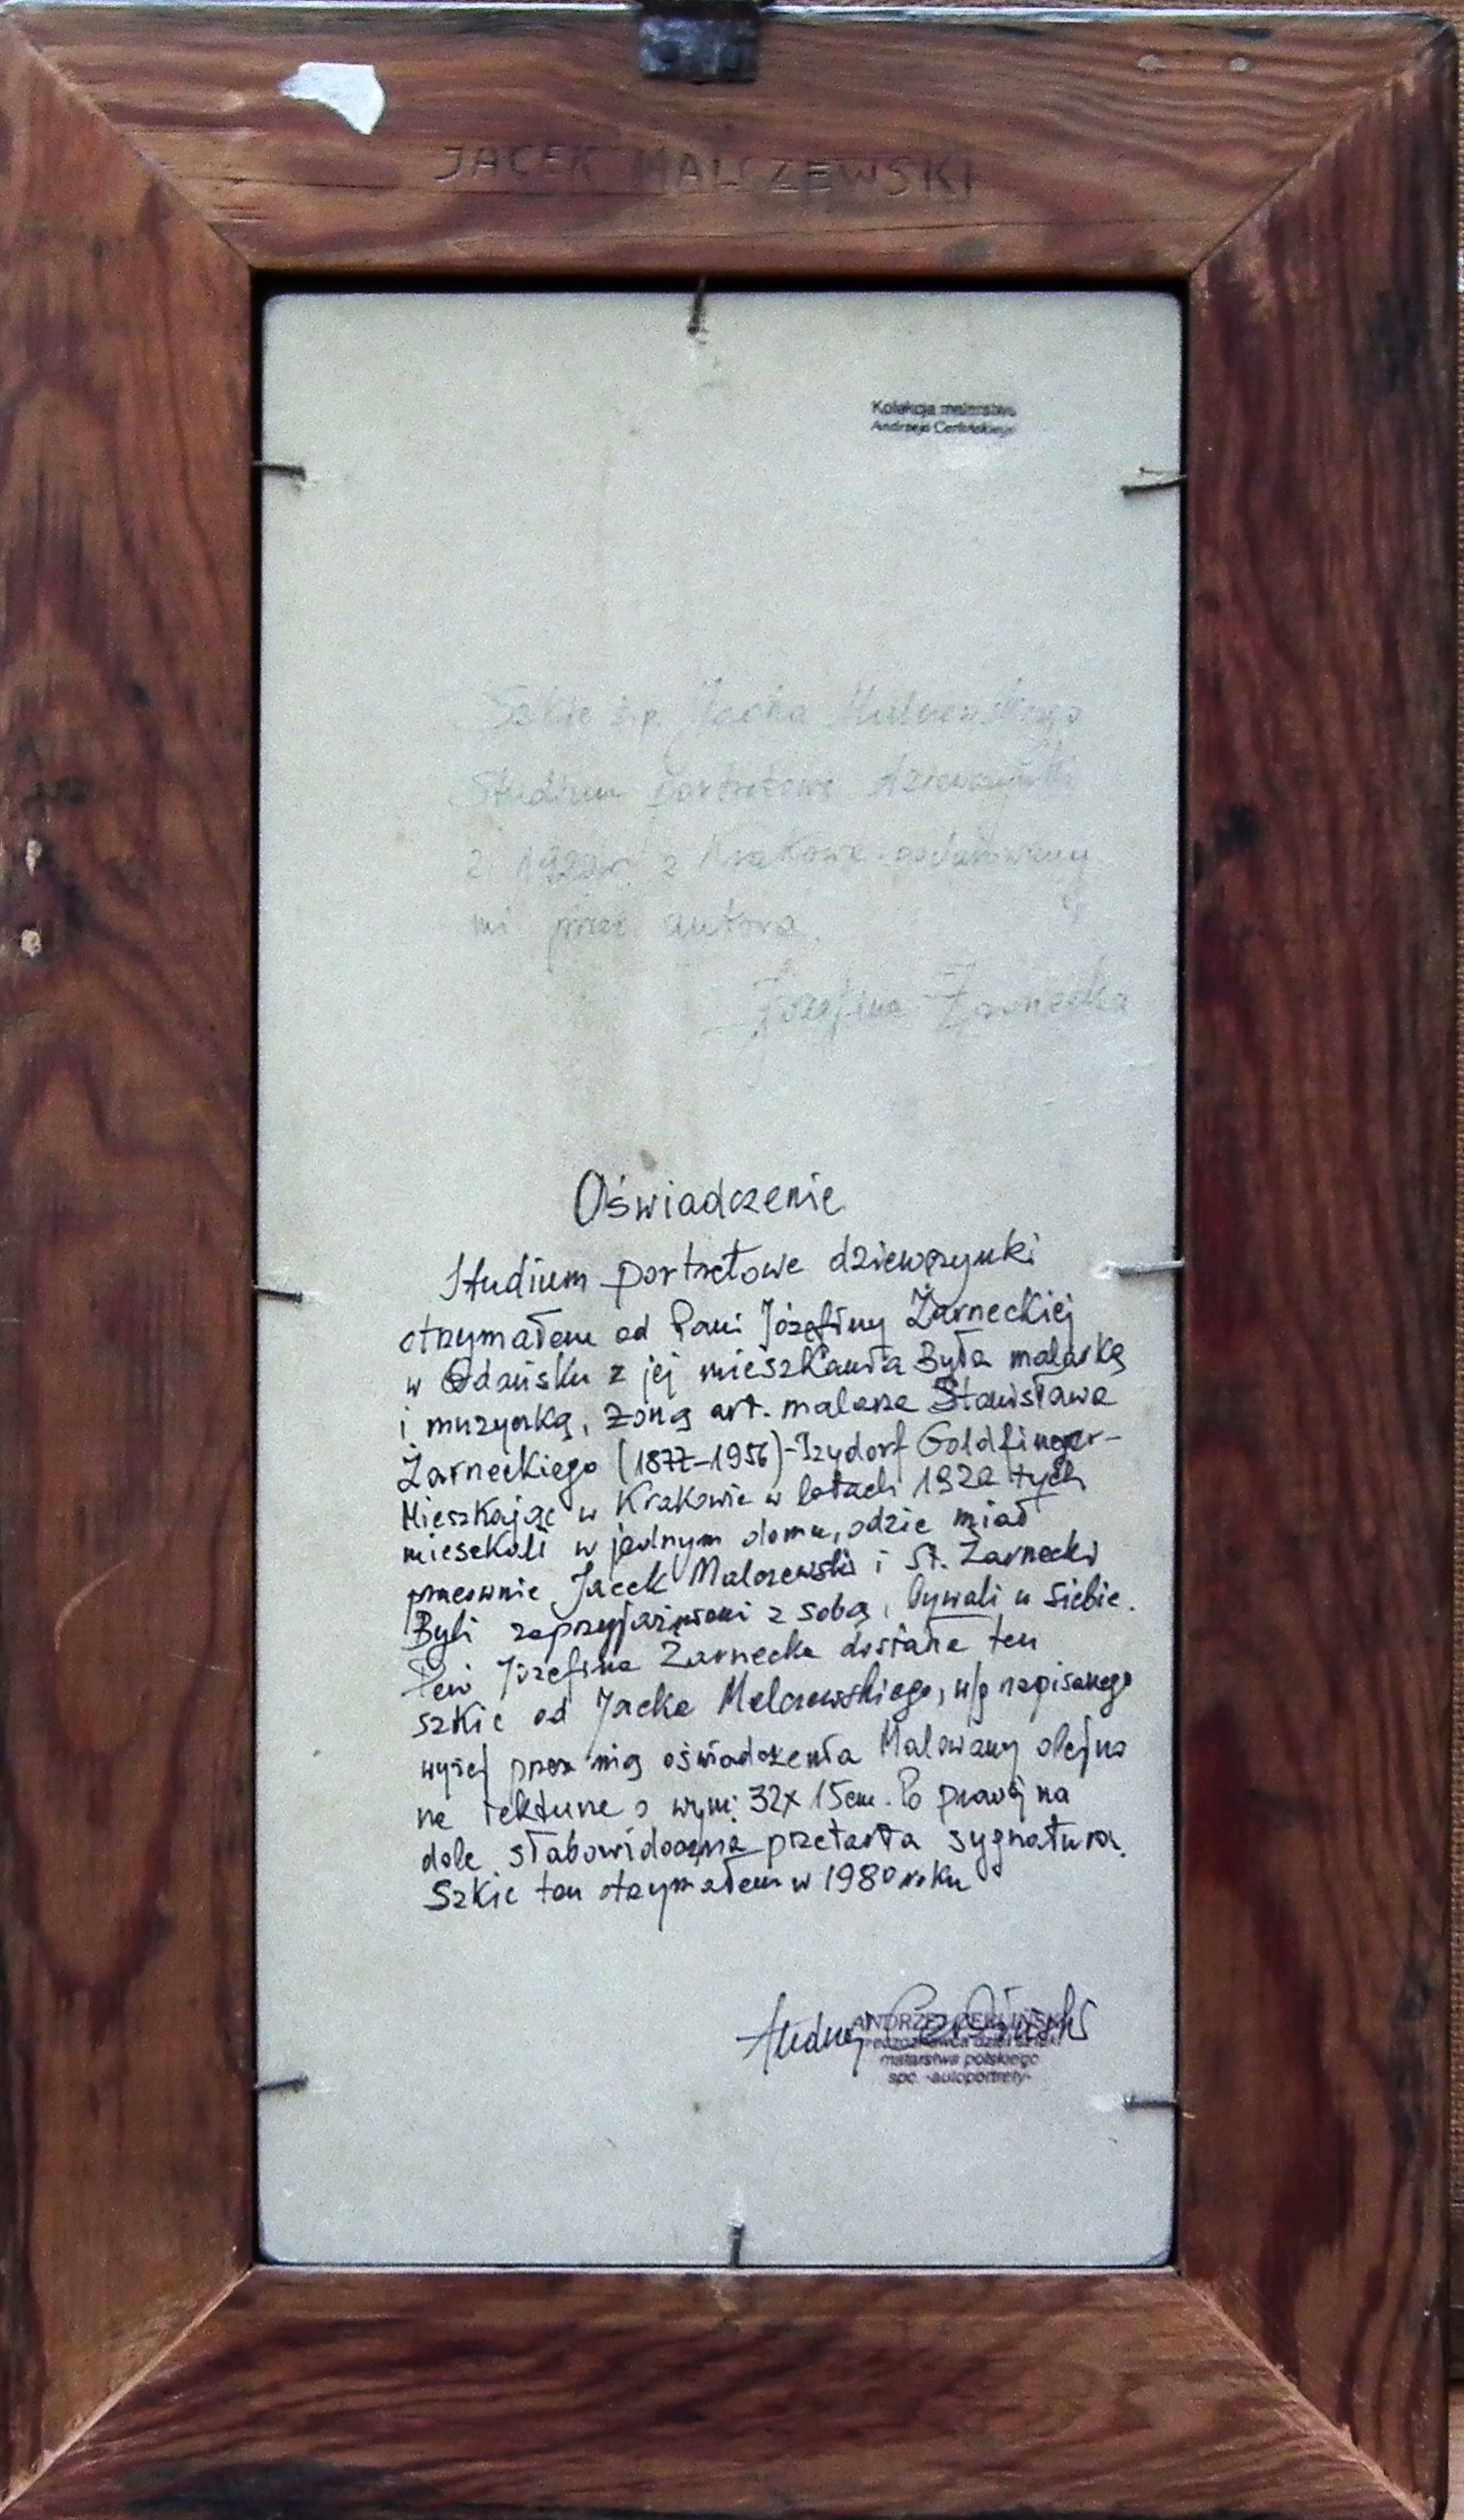 JACEK MALCZEWSKI
Kolekcja malarstwa
Andrzeja Cerlińskiego
Szkic ś.p. Jacka Malczewskiego
Studium portretowe dziewczynki
z 192 r. z Krakowa podarowany
mi przez autora.
Józefina Żarnecka
Oświadczenie
Studium portretowe dziewczynki
otrzymałem od Pani Józefiny Żarneckiej
w Gdańsku z jej mieszkania Była malarką
i muzyczką, żoną art. malarza Stanisława
Żarneckiego (1877-1956)-Izydorf Goldfinger-
Mieszkając w Krakowie w latach 1920 tych
mieszkali w jednym domu, gdzie miał
pracownię Jacek Malczewski i St. Żarnecki
Byli zaprzyjaźnieni z sobą, bywali u siebie.
Pani Józefina Żarnecka dostała ten
szkic od Jacka Malczewskiego, w/g napisanego
wyżej przez nią oświadczenia Malowany olejno
na tekturze o wym: 32x15cm. Po prawej na
dole słabowidoczna przetarta sygnatura.
Szkic ten otrzymałem w 1980 roku
Andrzej Cerliński
ANDRZEJ CERLIŃSKI
rzeczoznawca dzieł sztuki
malarstwa polskiego
spc. -autoportrety-